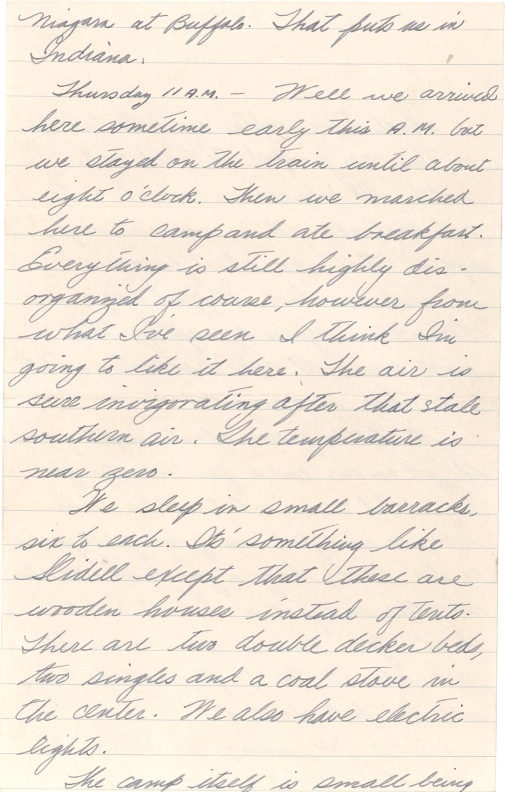 Niagara at Buffalo. That puts us in
Indiana.
Thursday 11 A.M. — Well we arrived
here sometime early this A.M. but
we stayed on the train until about
eight o'clock. Then we marched
here to camp and ate breakfast.
Everything is still highly dis-
organized of course, however from
what I've seen I think I'm
going to like it here. The air is
sure invigorating after that stale
southern air. The temperature is
near zero.
We sleep in small barracks,
six to each. Its' something like
Slidell except that these are
wooden houses instead of tents.
There are two double decker beds,
two singles and a coal stove in
the center. We also have electric
lights.
The camp itself is small being